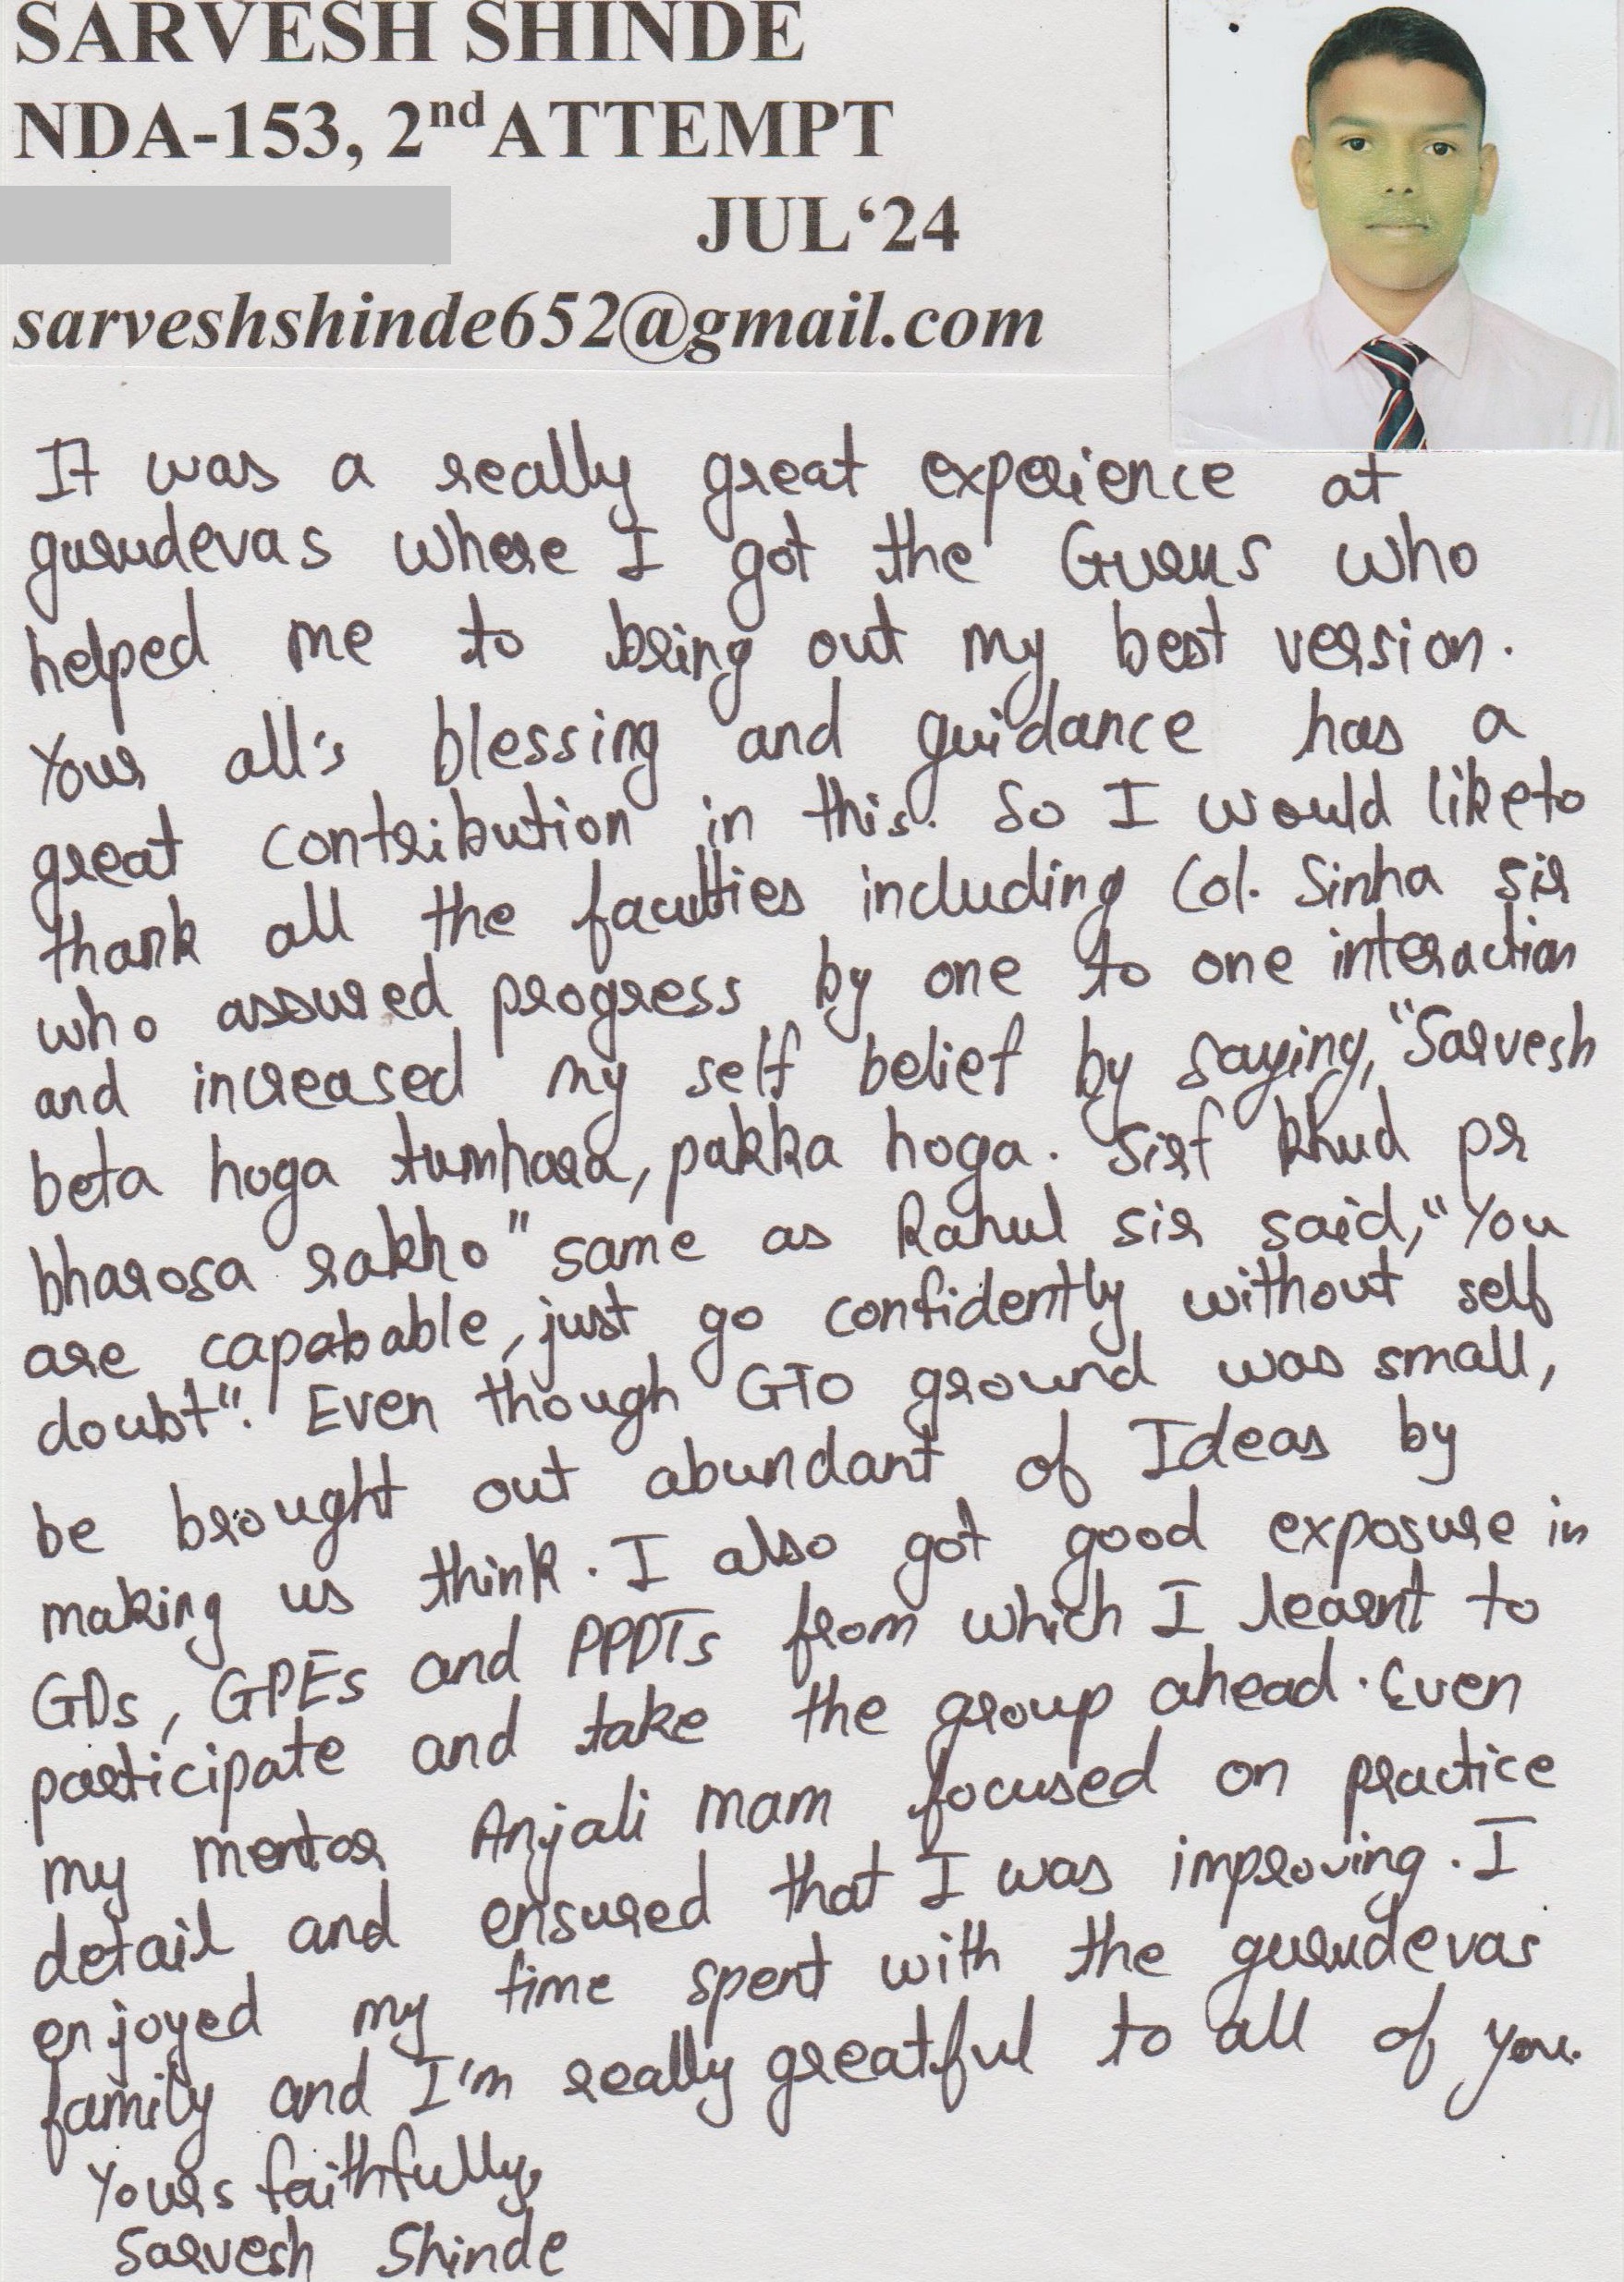 SARVESH SHINDE
NDA-153, 2nd ATTEMPT
JUL‘24
sarveshshinde652@gmail.com
It was a really great experience at
gurudevas where I got the Gurus who
helped me to bring out my best version.
Your all's blessing and guidance has a
great contribution in this. So I would like to
thank all the faculties including Col. Sinha sir
who assured progress by one to one interaction
and increased my self belief by saying, "Sarvesh
beta hoga tumhara, pakka hoga. Sirf khud pr
bharosa rakho" same as Rahul sir said, "You
are capabable, just go confidently without self
doubt". Even though GTO ground was small,
be brought out abundant of Ideas by
making us think. I also got good exposure in
GDs, GPEs and PPDTs from which I learnt to
participate and take the group ahead. Even
my mentor Anjali mam focused on practice
detail and ensured that I was improving. I
enjoyed my time spent with the gurudevas
family and I'm really greatful to all of you.
Yours faithfully,
Sarvesh Shinde